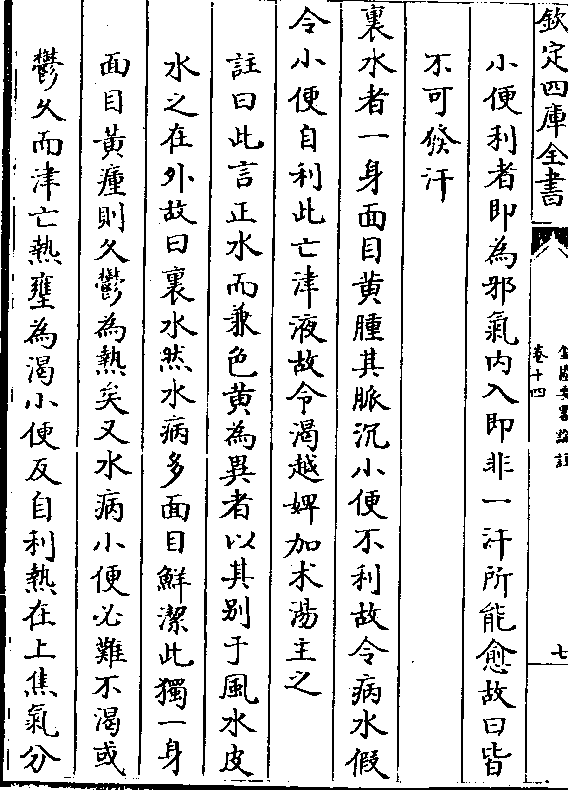 欽定四庫全書
金匱要畧論註
卷十四
七
小便利者即為邪氣内入即非一汗所能愈故曰皆
不可發汗
裏水者一身面目黄腫其脈沉小便不利故令病水假
令小便自利此亡津液故令渴越婢加术湯主之
註曰此言正水而兼色黄為異者以其别于風水皮
水之在外故曰裏水然水病多面目鮮潔此獨一身
面目黄瘇則久鬱為熱矣又水病小便必難不渴或
鬱久而津亡熱壅為渴小便反自利熱在上焦氣分